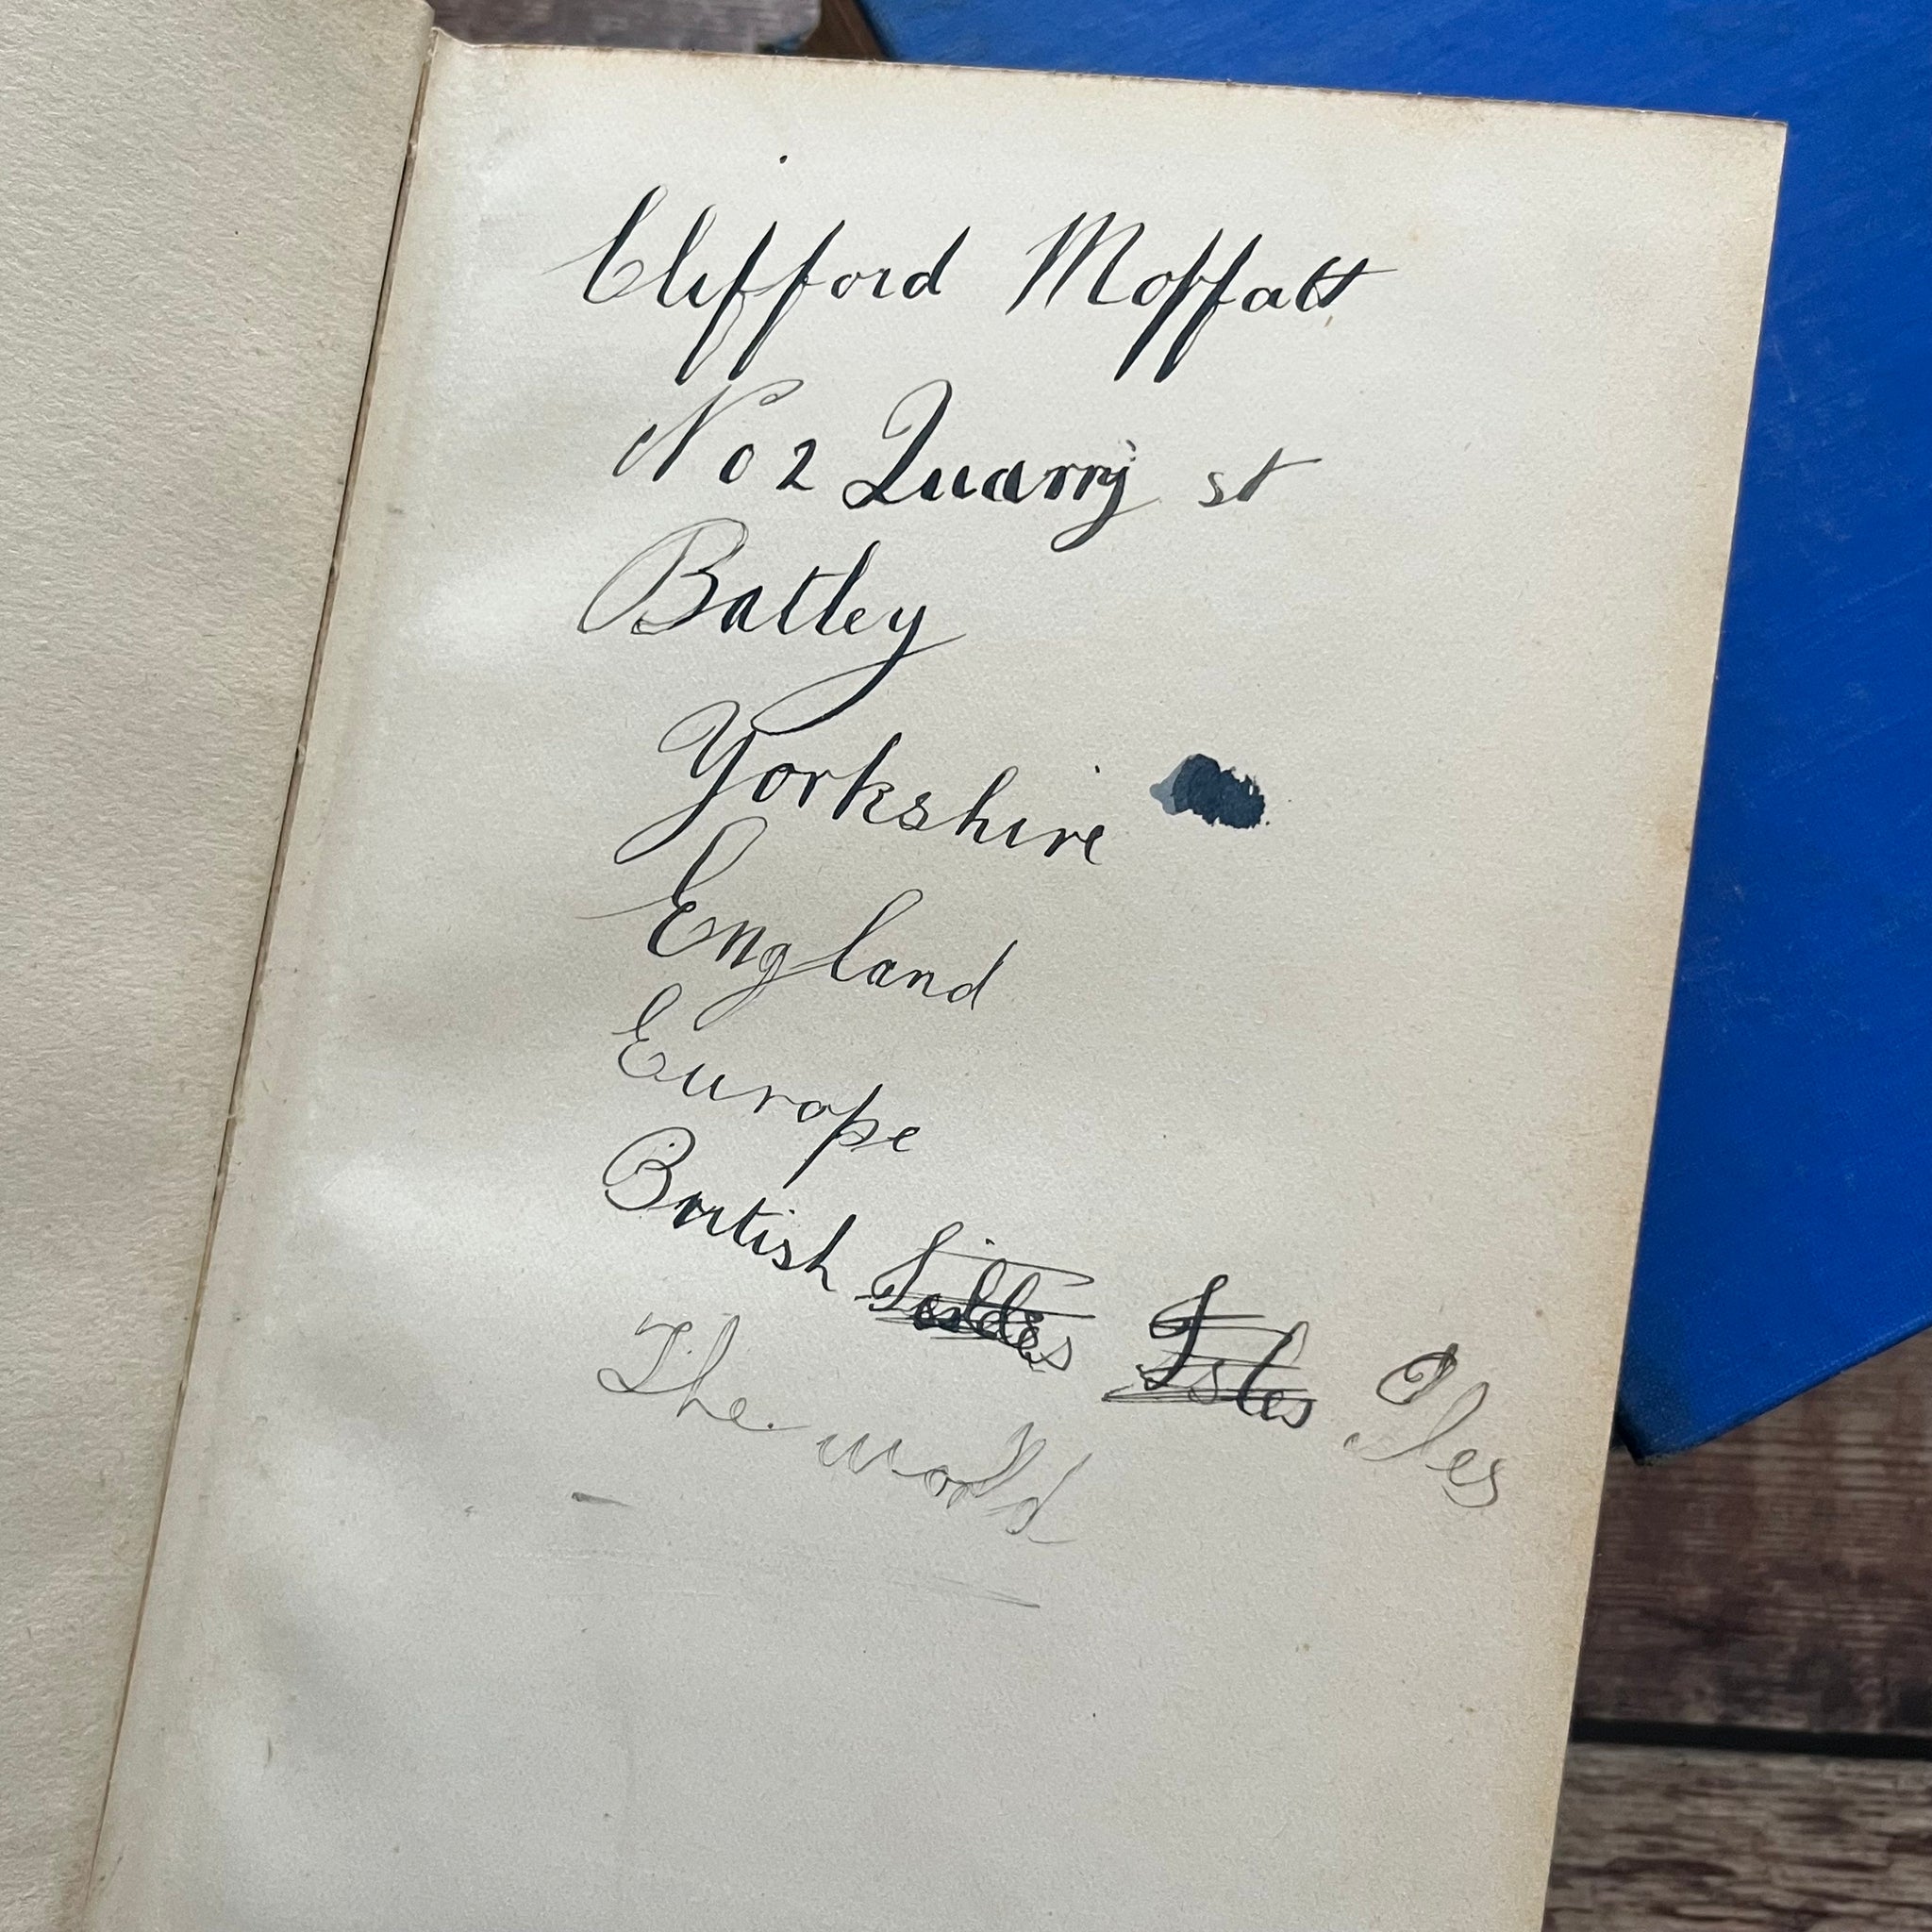 Clifford Moffatt
No 2 Quarry st
Batley
Yorkshire
England
Europe
British Isles Iles
The world